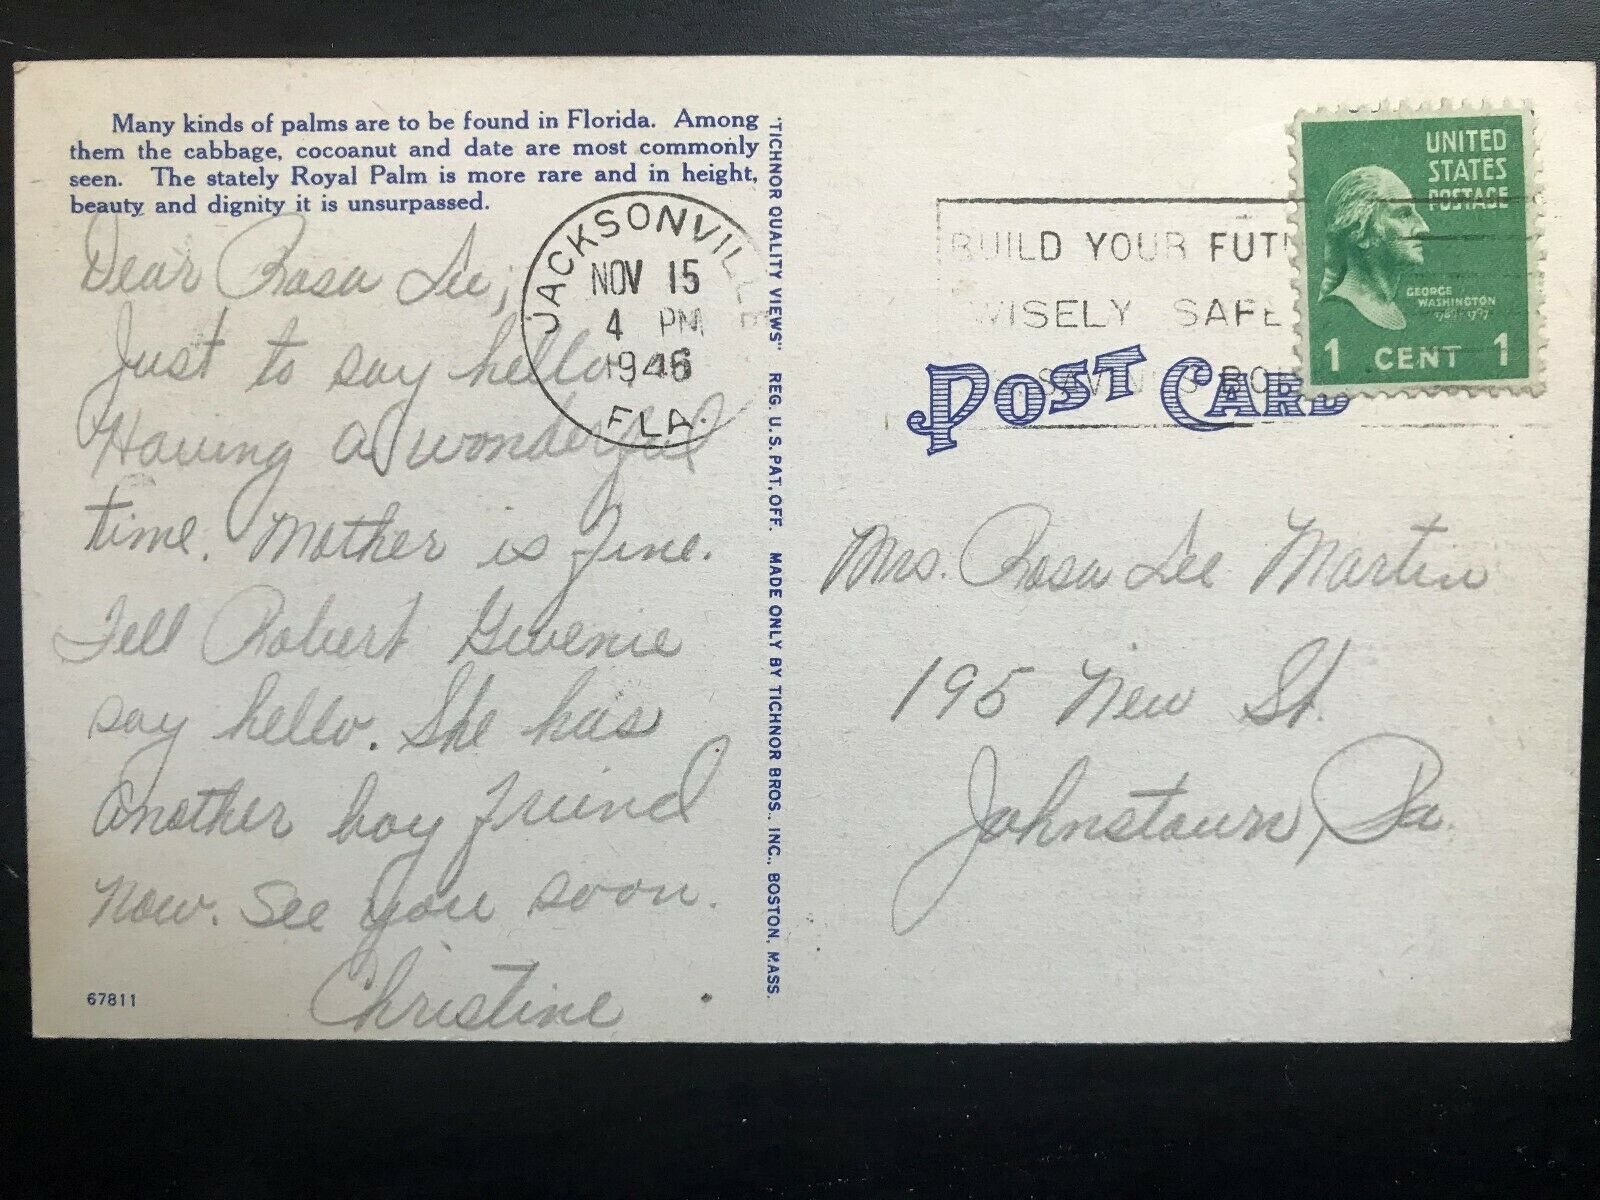 Many kinds of palms are to be found in Florida. Among
them the cabbage, cocoanut and date are most commonly
seen. The stately Royal Palm is more rare and in height,
beauty and dignity it is unsurpassed.
Dear Rosa Lee,
Just to say hello.
Having a wonderful
time. Mother is fine.
Tell Robert Gwenie
say hello. She has
another boy friend
now. See you soon.
Christine
67811
"TICHNOR QUALITY VIEWS" REG. U.S. PAT. OFF. MADE ONLY BY TICHNOR BROS., INC., BOSTON, MASS.
JACKSONVILLE
NOV 15
4 PM
1946
FLA.
BUILD YOUR FUT
WISELY SAFE
SAVINGS BO
UNITED
STATES
POSTAGE
GEORGE
WASHINGTON
1789-1797
1 CENT 1
POST CARD
Mrs. Rosa Lee Martin
195 New St.
Johnstown, Pa.